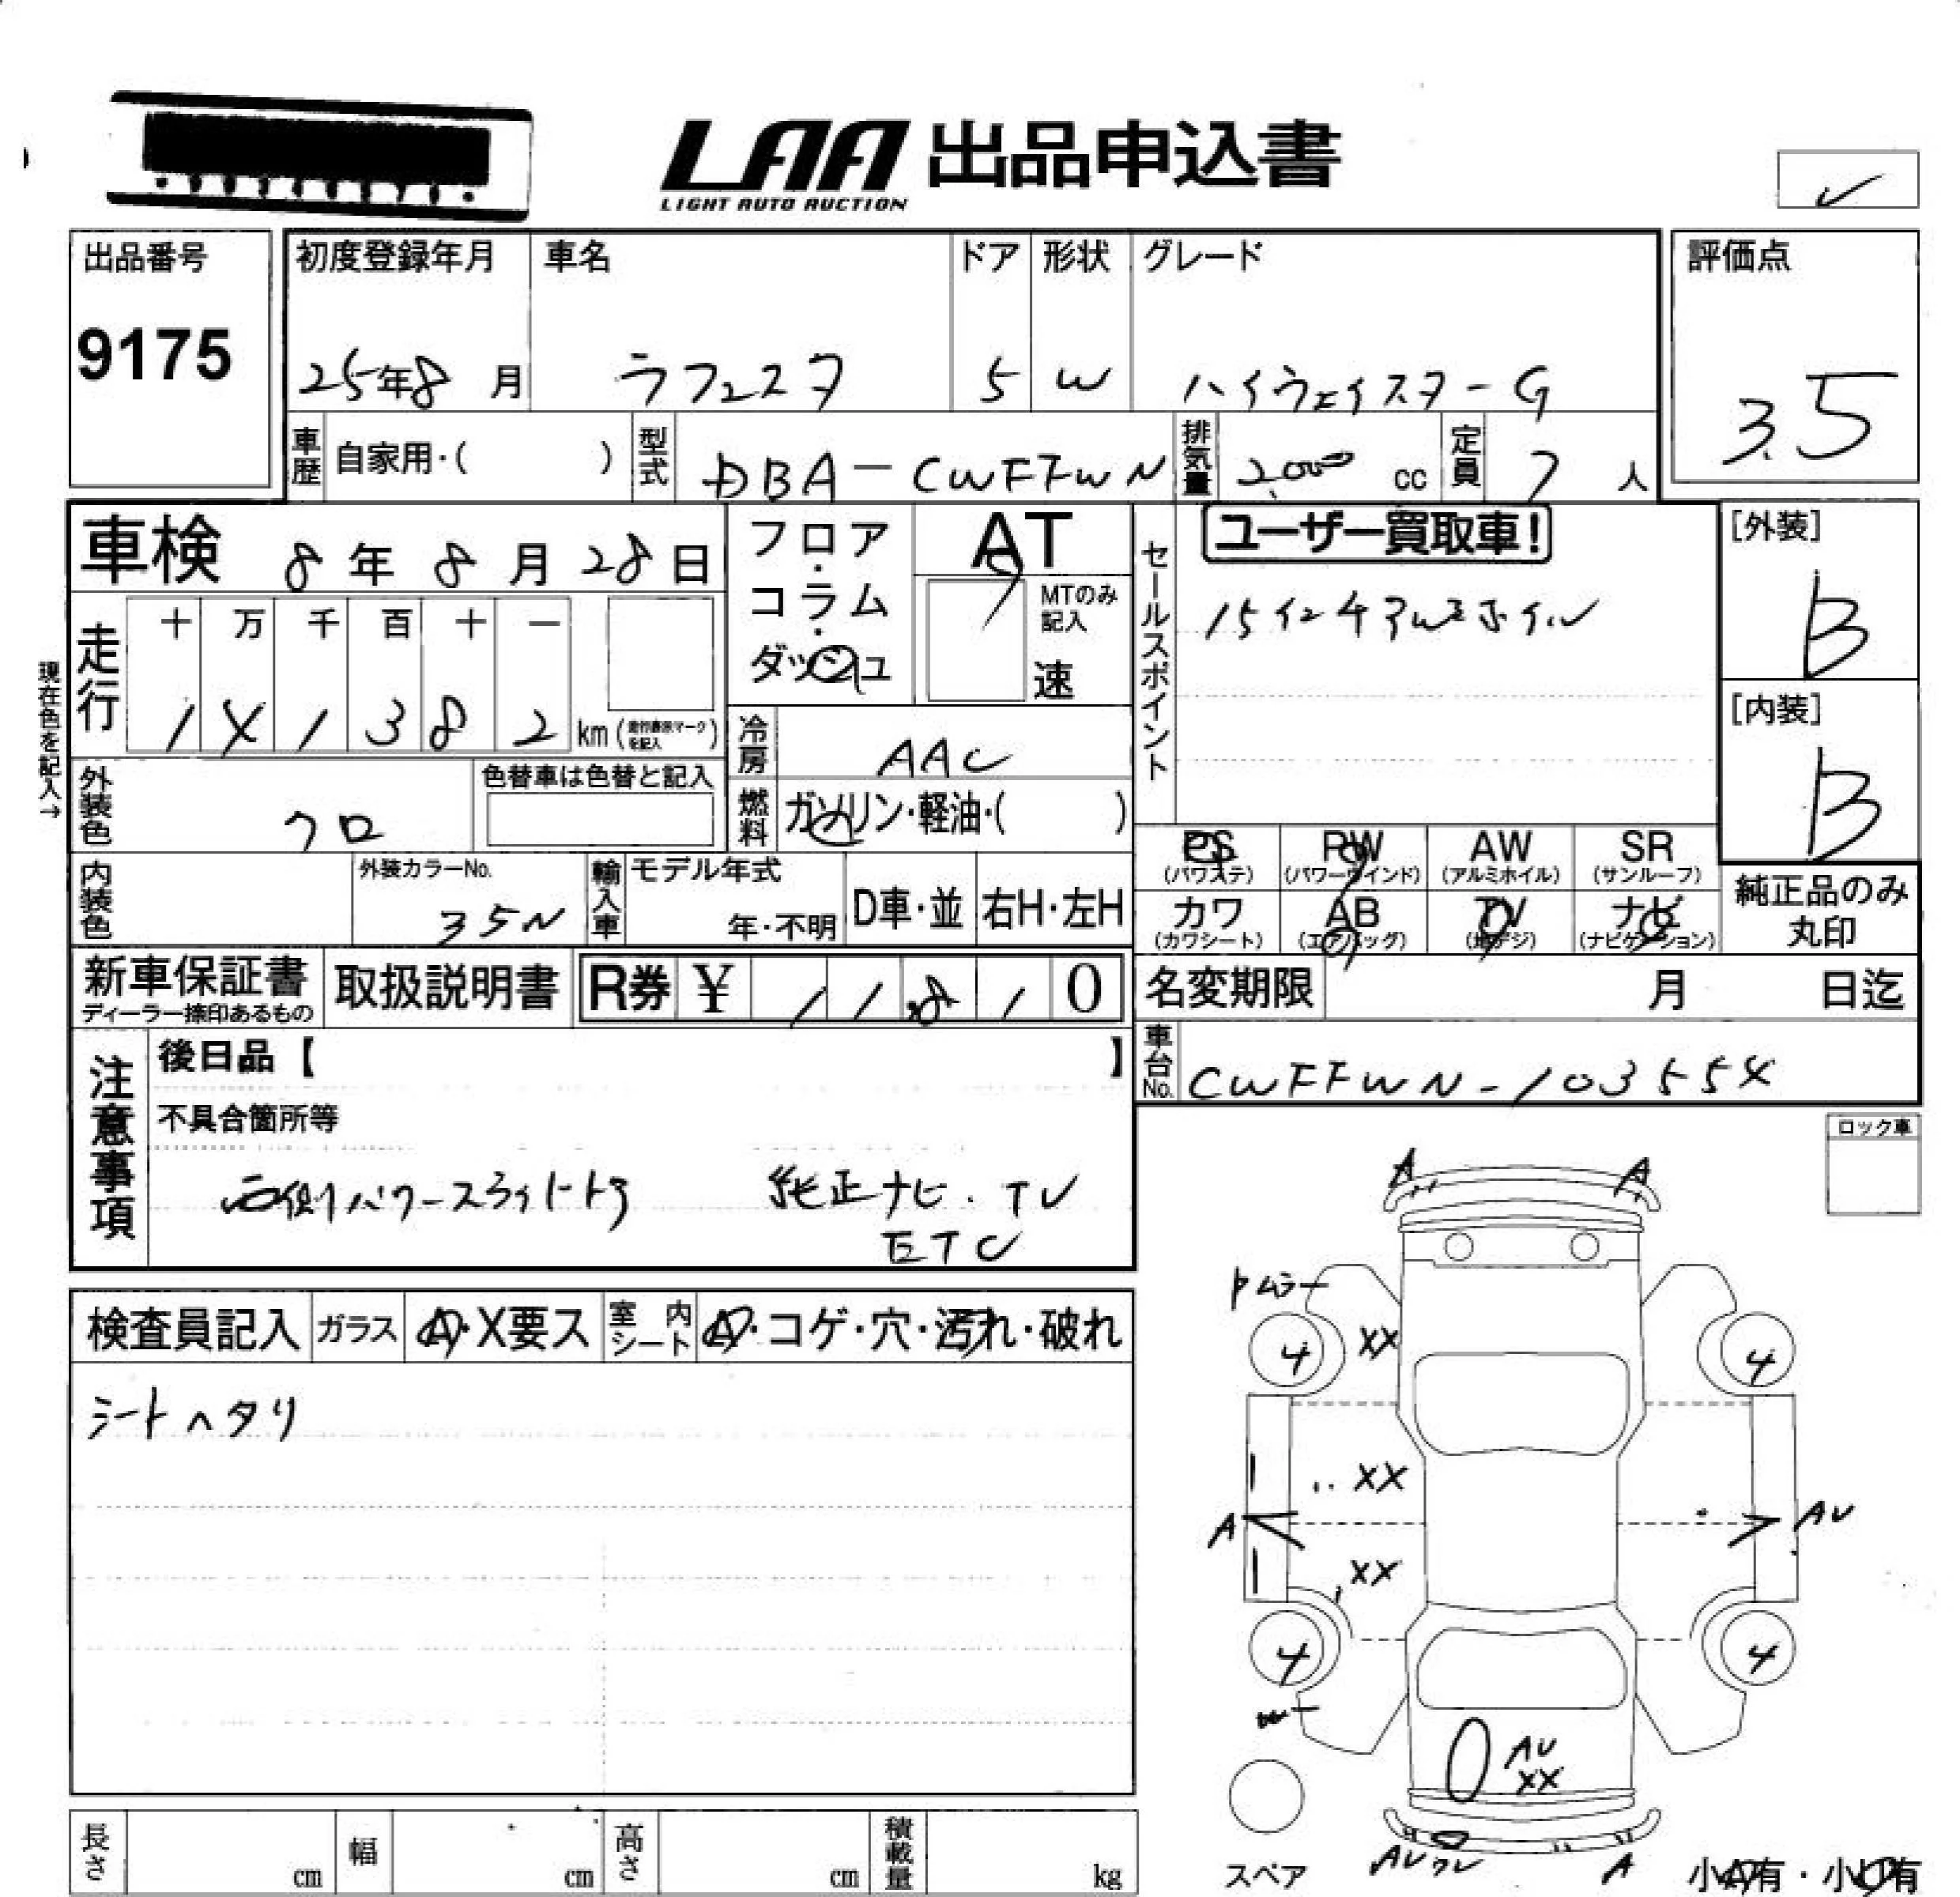 LAA 出品申込書
LIGHT AUTO AUCTION
出品番号
9175
初度登録年月
25年8月
車名
ラフェスタ
ドア
5
形状
W
グレード
ハイウェイスターG
評価点
3.5
車歴
自家用・( )
型式
DBA-CWFFWN
排気量
2,000 cc
定員
7人
車検 8年8月28日
フロア・コラム・ダッシュ
AT
MTのみ記入
速
セールスポイント
ユーザー買取車!
15インチアルミホイル
[外装]
B
[内装]
B
現在色を記入→
走行
十万千百十一
1 4 1 3 8 2 km(走行表示マークを記入)
冷房
AAC
燃料
ガソリン・軽油・( )
外装色
クロ
色替車は色替と記入
内装色
外装カラーNo.
35N
輸入車
モデル年式
年・不明
D車・並
右H・左H
PS
(パワステ)
PW
(パワーウインド)
AW
(アルミホイル)
SR
(サンルーフ)
カワ
(カワシート)
AB
(エアバッグ)
TV
(地デジ)
ナビ
(ナビゲーション)
純正品のみ
丸印
新車保証書
ディーラー捺印あるもの
取扱説明書
R券 ¥ 1 1 8 1 0
名変期限 月 日迄
車台No.
CWFFWN-103554
注意事項
後日品【 】
不具合箇所等
両側パワースライドドア 純正ナビ.TV
ETC
ロック車
検査員記入
ガラス
A・X要ス
室内シート
A・コゲ・穴・汚れ・破れ
シートヘタリ
A
A
ムラ
4
XX
4
XX
A
AU
XX
4
4
AU
XX
スペア
AU
A
小A有・小U有
長さ cm
幅 cm
高さ cm
積載量 kg